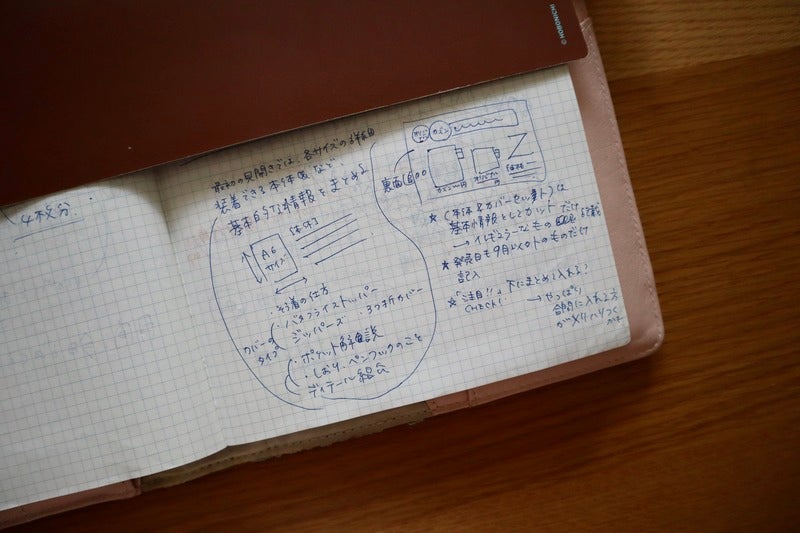 © HOBONICHI
4枚分
最初の見開きでは、各サイズの
装着できる本体
など、
基本的な情報をまとめる
A6
サイズ
〈本体〉
・そう着の仕方
カバーの
タイプ
・バタフライストッパー
・ジッパーズ
・3つ折カバー
・ポケット解説
・しおり、ペンフックのこと
ディテール紹介
カズン
★〈本体&カバーセット〉は
基本情報としてカットだけ
→イレギュラーなもの
記載
★発売日も9月1日以外のものだけ
記入
★「注目!!」
CHECK!
下にまとめて入れる?
→やっぱり
に入れる方
がメリハリつく